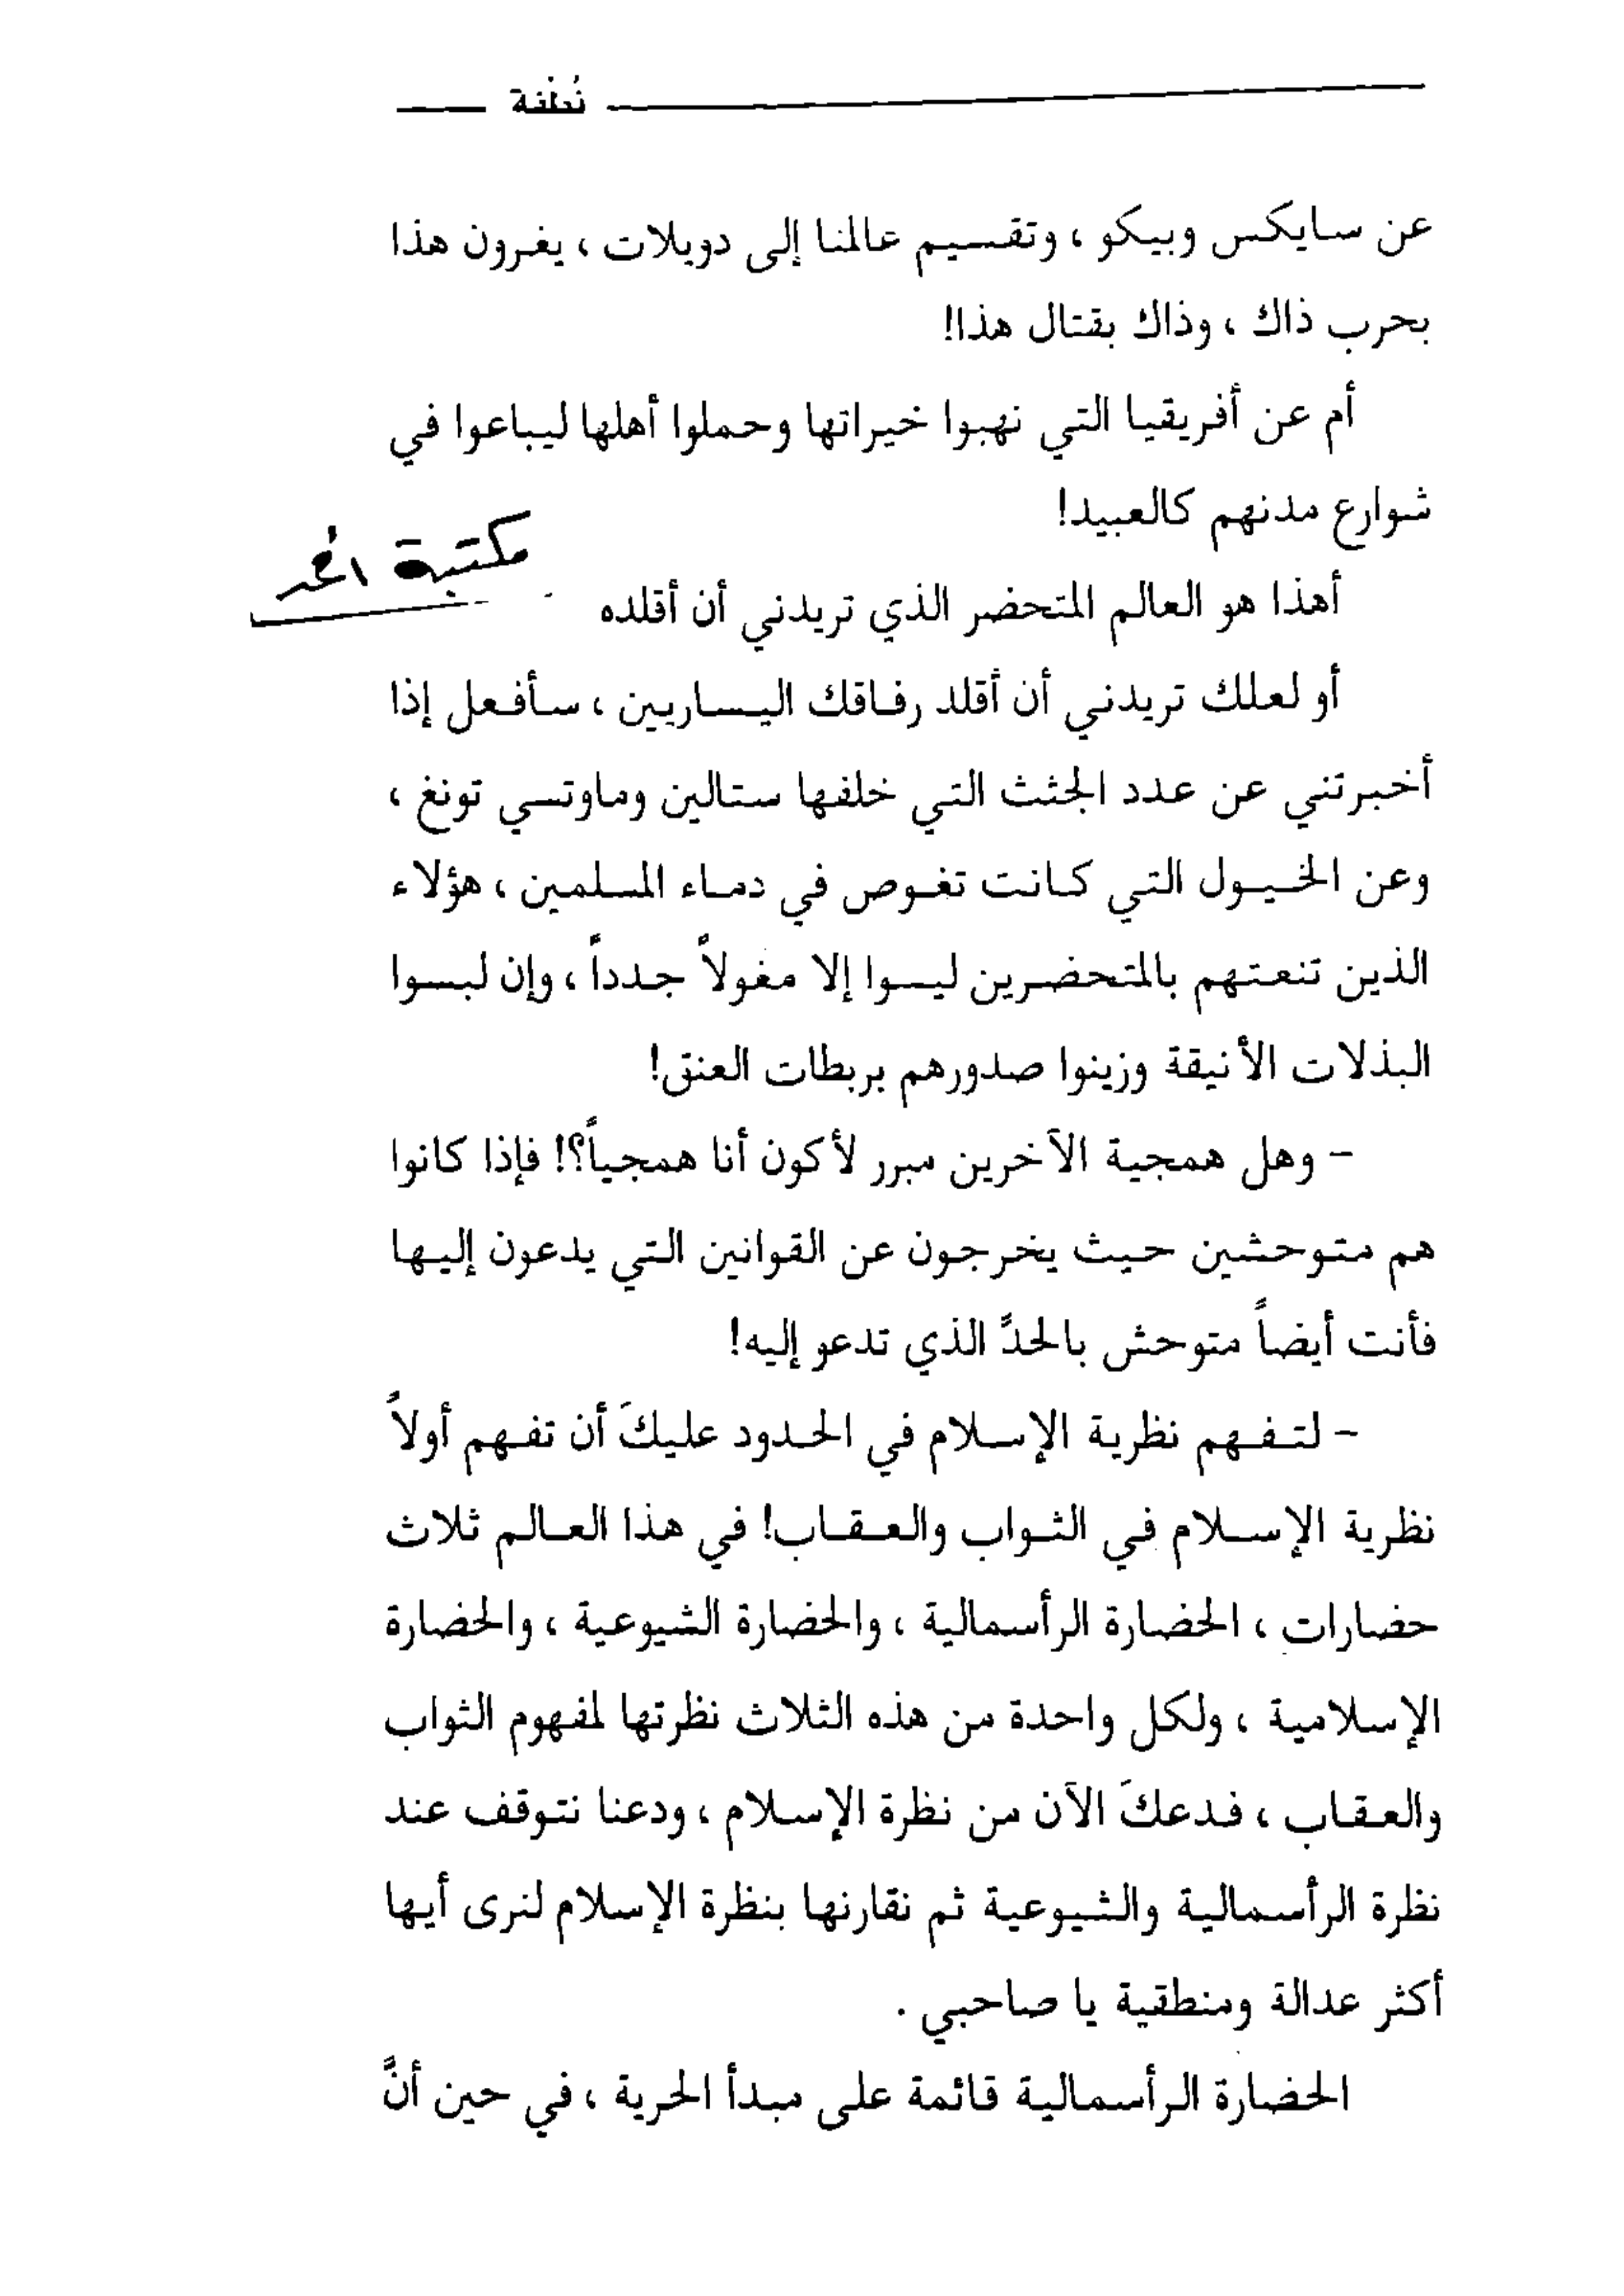 نُطْفَة
عن سايكس وبيكو ، وتقسيم عالمنا إلى دويلات ، يغرون هذا
بحرب ذاك ، وذاك بقتال هذا!
أم عن أفريقيا التي نهبوا خيراتها وحملوا أهلها ليباعوا في
شوارع مدنهم كالعبيد!
مكتبة
أهذا هو العالم المتحضر الذي تريدني أن أقلده
أو لعلك تريدني أن أقلد رفاقك اليساريين ، سأفعل إذا
أخبرتني عن عدد الجثث التي خلفها ستالين وماوتسي تونغ ،
وعن الخيول التي كانت تغوص في دماء المسلمين ، هؤلاء
الذين تنعتهم بالمتحضرين ليسوا إلا مغولاً جدداً ، وإن لبسوا
البذلات الأنيقة وزينوا صدورهم بربطات العنق!
- وهل همجية الآخرين مبرر لأكون أنا همجياً؟! فإذا كانوا
هم متوحشين حيث يخرجون عن القوانين التي يدعون إليها
فأنت أيضاً متوحش بالحدِّ الذي تدعو إليه!
- لتفهم نظرية الإسلام في الحدود عليكَ أن تفهم أولاً
نظرية الإسلام في الثواب والعقاب! في هذا العالم ثلاث
حضارات ، الحضارة الرأسمالية ، والحضارة الشيوعية ، والحضارة
الإسلامية ، ولكل واحدة من هذه الثلاث نظرتها لمفهوم الثواب
والعقاب ، فدعكَ الآن من نظرة الإسلام ، ودعنا نتوقف عند
نظرة الرأسمالية والشيوعية ثم نقارنها بنظرة الإسلام لنرى أيها
أكثر عدالة ومنطقية يا صاحبي .
الحضارة الرأسمالية قائمة على مبدأ الحرية ، في حين أنَّ